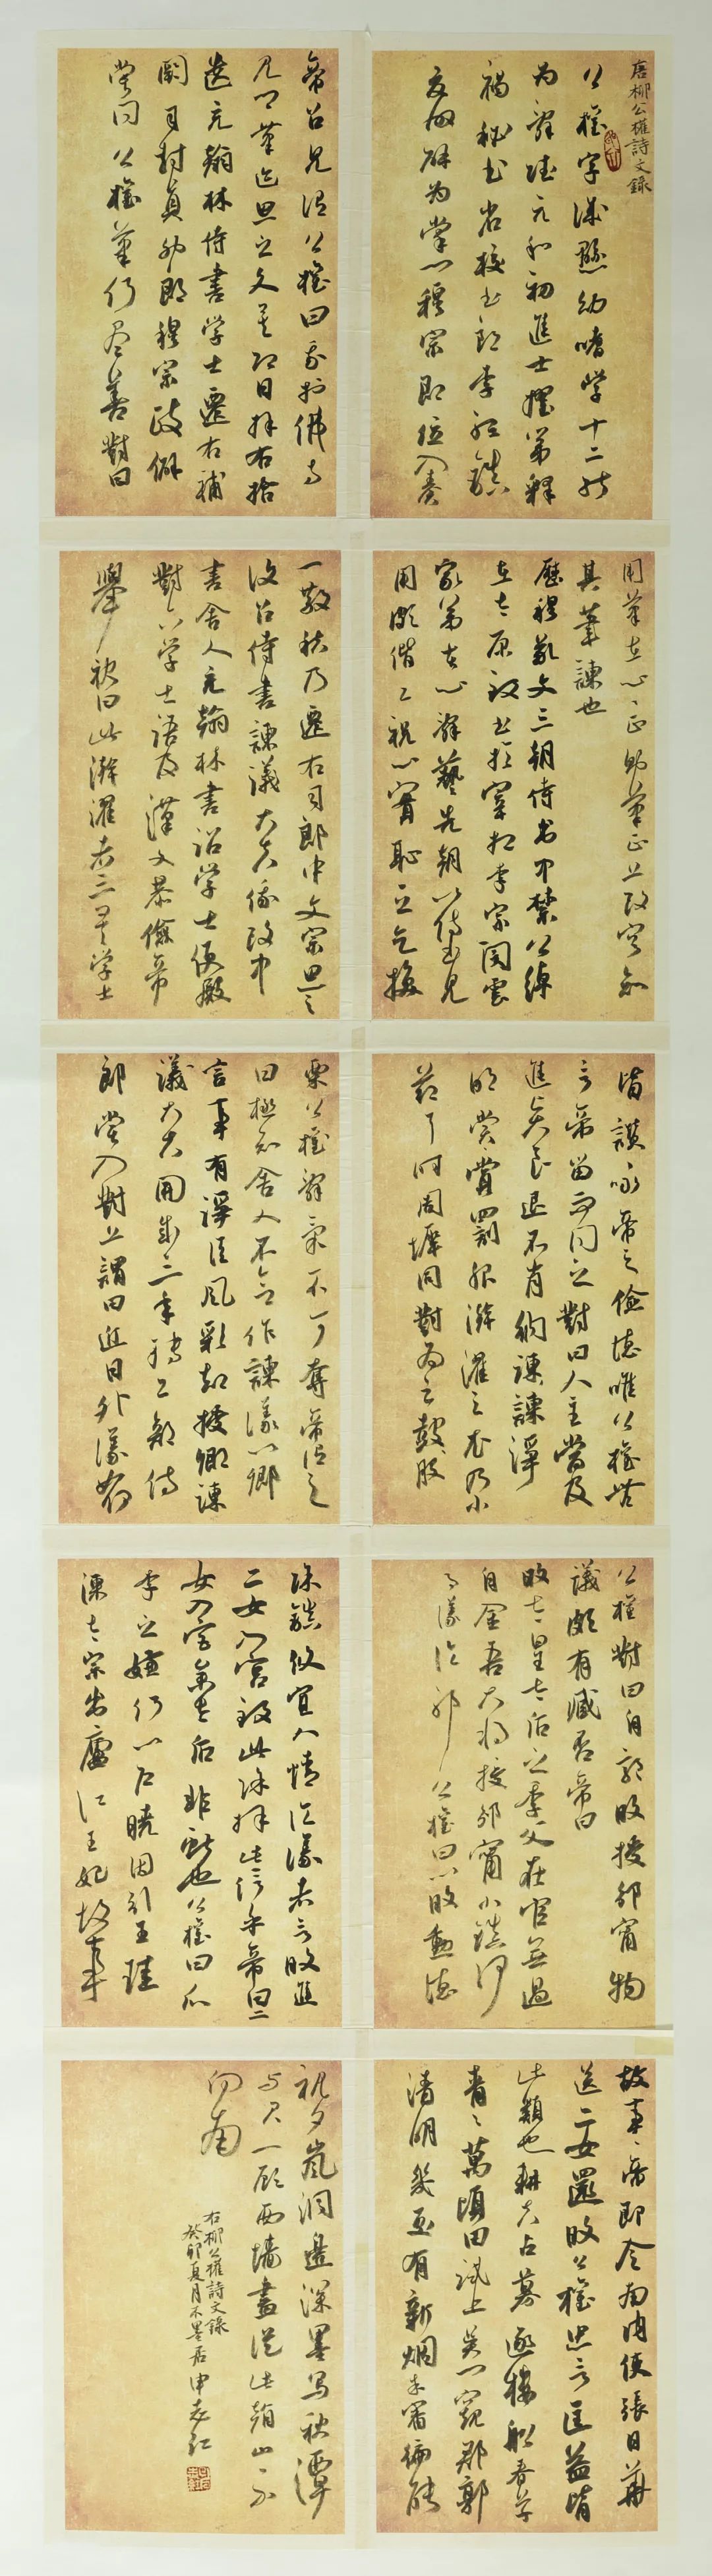 唐柳公權詩文錄
公權字誠懸幼嗜學十二能
为辞赋元和初進士擢第釋
褐秘书省校书郎李聽鎮
夏州辟为掌书穆宗即位入奏
帝召見谓公權曰我於佛寺
見卿筆迹思之久矣即日拜右拾
遗充翰林侍書学士遷右補
闕司封員外郎穆宗政僻
嘗问公權筆何尽善對曰
用筆在心心正则筆正上改容知
其筆諫也
歷穆敬文三朝侍书中禁公綽
在太原致书於宰相李宗閔云
家弟苦心辞藝先朝以侍书見
用頗偕工祝心實恥之乞换
一散秩乃遷右司郎中文宗思之
復召侍書諫議大夫俄改中
書舍人充翰林書诏学士便殿
對六学士语及漢文恭儉帝
舉袂曰此澣濯者三矣学士
皆讃咏帝之儉德唯公權無
言帝留而问之對曰人主當及
進賢良退不肖納諫諫諍
明賞賞罰服澣濯之衣乃小
節耳时周墀同對为之鼓股
栗公權辞氣不可奪帝谓之
曰極知舍人不合作諫議以卿
言事有諍臣風彩却授卿諫
議大夫開成三年轉工部侍
郎嘗入對上謂曰近日外議如何
公權對曰自郭旼授邠甯物
議頗有臧否帝曰
旼太皇太后之季父在官無過
自金吾大將授邠甯小鎮何
事議论耶公權曰以旼勳德
除鎮攸宜人情论議者言旼進
二女入宫致此除拜此信乎帝曰二
女入宫參太后非獻也公權曰瓜
李之嫌何以户曉因引王珪
諫太宗出廬江王妃故事
故事帝即令南内使張日華
送二女還旼公權忠言匡益皆
此類也耕夫占募逐樓船春草
青青萬頃田試上吴門窺郡郭
清明幾處有新烟未審偏能
视夕嵐洞邊深墨写秋潭
与君一顾西墙畫從此看山不
向南
右柳公權詩文錄
癸卯夏月不墨居申志红